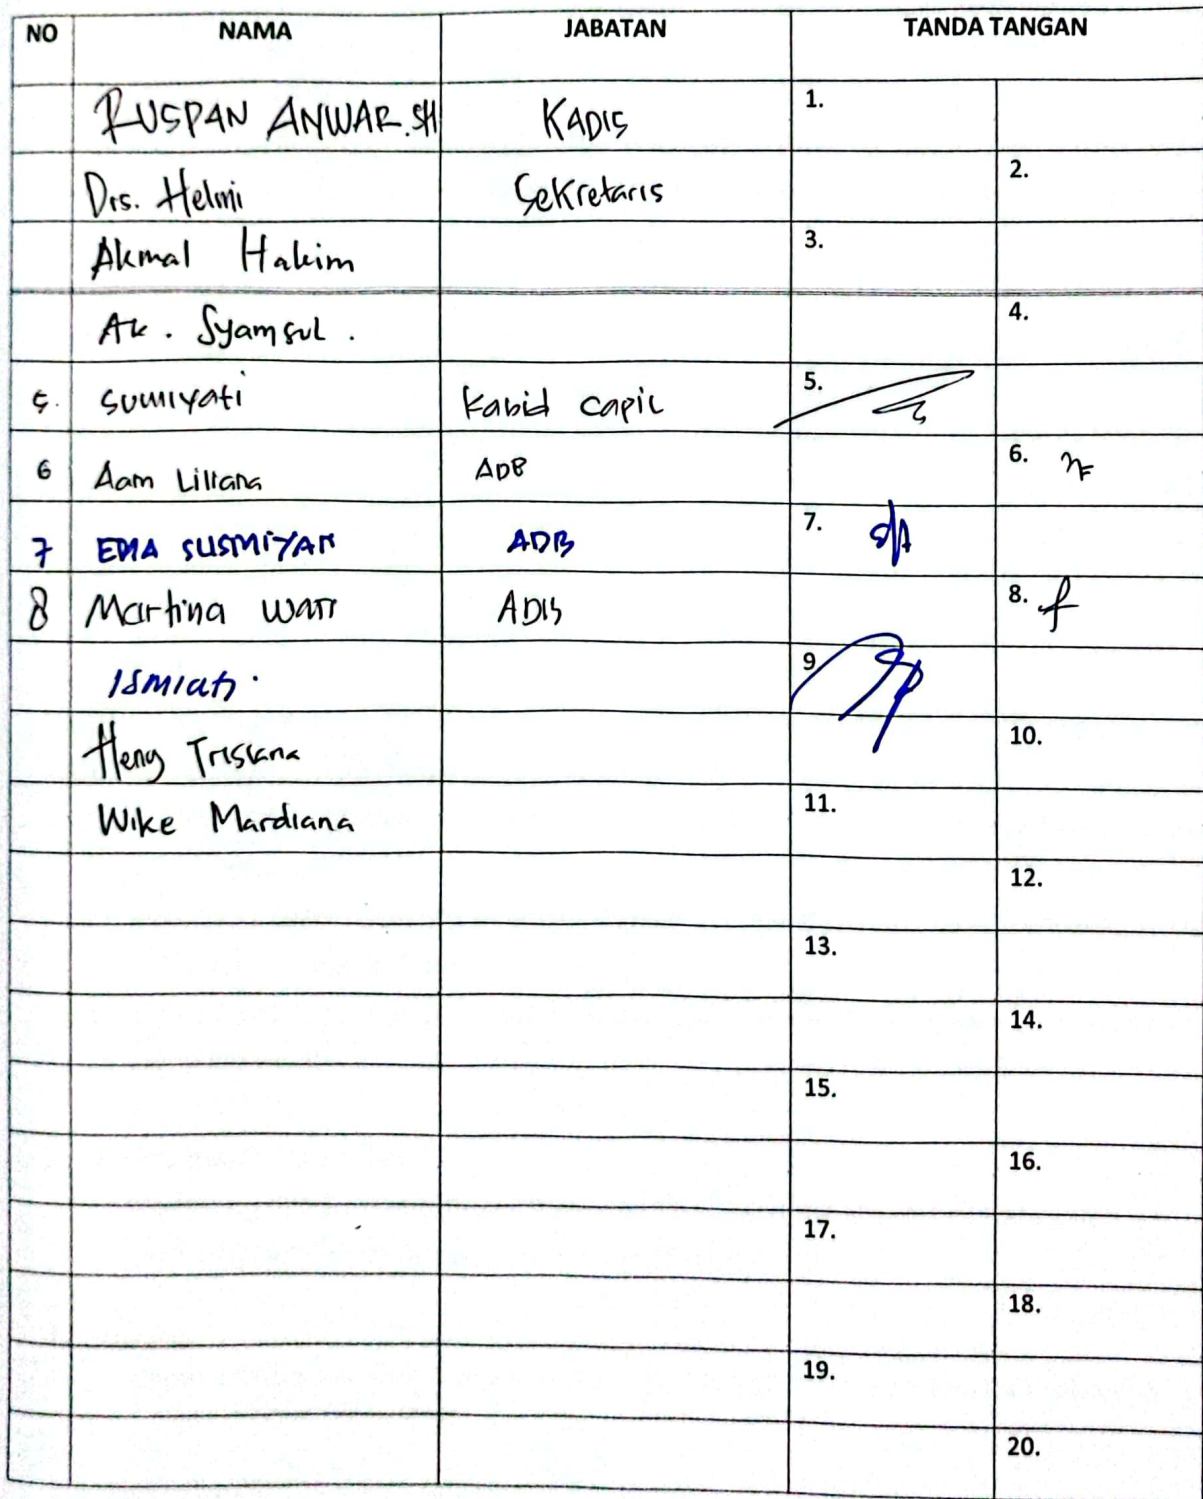 NO NAMA JABATAN TANDA TANGAN
RUSPAN ANWAR.SH KADIS 1.
Drs. Helmi Sekretaris 2.
Akmal Hakim 3.
Ak. Syamsul. 4.
5. sumiyati Kabid capil 5.
6 Aam Liliana ADB 6.
7 EMA SUSMIYAN ADB 7.
8 Martina Wati ADB 8.
Ismiati. 9
Heny Trisiana 10.
Wike Mardiana 11.
12.
13.
14.
15.
16.
17.
18.
19.
20.